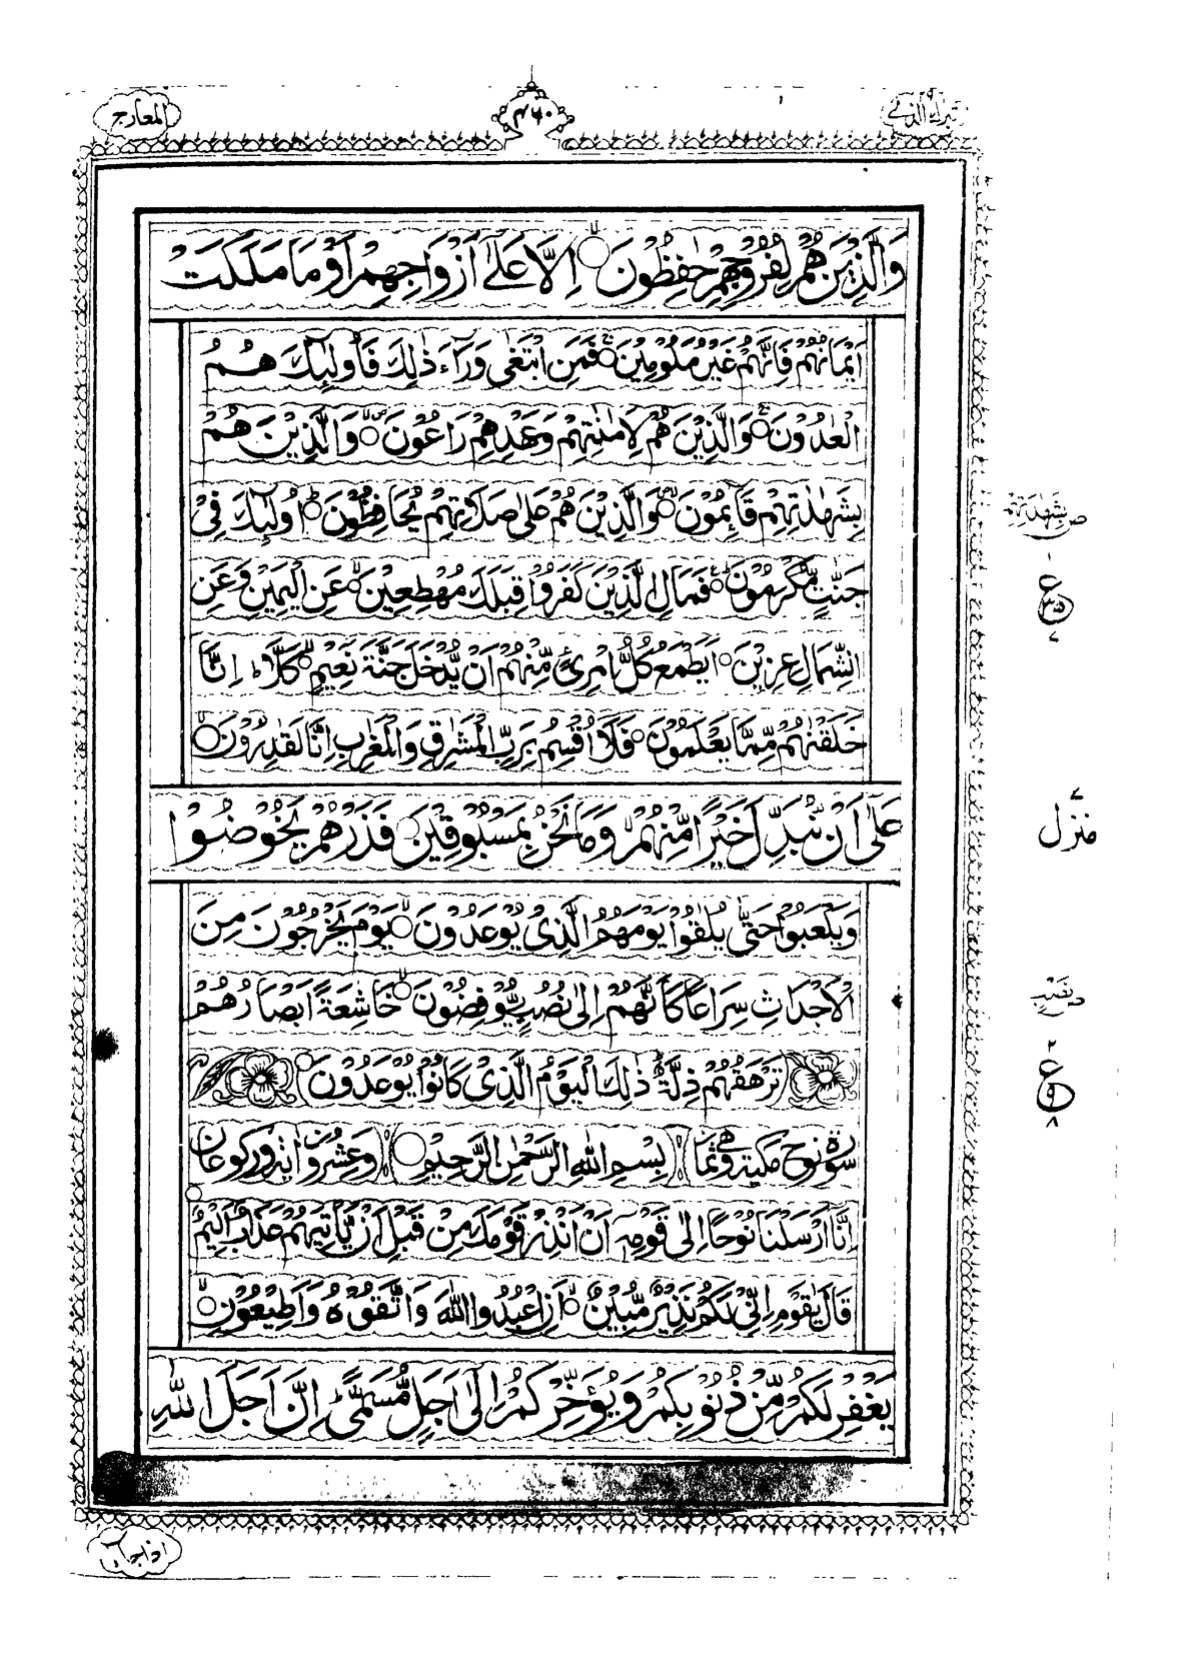 تبارك الذي ٢٩
٤٦٠
المعارج
وَالَّذِيْنَ هُمْ لِفُرُوْجِهِمْ حٰفِظُوْنَ ○ اِلَّا عَلٰٓى اَزْوَاجِهِمْ اَوْ مَا مَلَكَتْ
اَيْمَانُهُمْ فَاِنَّهُمْ غَيْرُ مَلُوْمِيْنَ ○ فَمَنِ ابْتَغٰى وَرَآءَ ذٰلِكَ فَاُولٰٓئِكَ هُمُ
الْعٰدُوْنَ ○ وَالَّذِيْنَ هُمْ لِاَمٰنٰتِهِمْ وَعَهْدِهِمْ رَاعُوْنَ ○ وَالَّذِيْنَ هُمْ
بِشَهٰدٰتِهِمْ قَآئِمُوْنَ ○ وَالَّذِيْنَ هُمْ عَلٰى صَلَاتِهِمْ يُحَافِظُوْنَ ○ اُولٰٓئِكَ فِيْ
جَنّٰتٍ مُّكْرَمُوْنَ ○ فَمَالِ الَّذِيْنَ كَفَرُوْا قِبَلَكَ مُهْطِعِيْنَ ○ عَنِ الْيَمِيْنِ وَعَنِ
الشِّمَالِ عِزِيْنَ ○ اَيَطْمَعُ كُلُّ امْرِئٍ مِّنْهُمْ اَنْ يُّدْخَلَ جَنَّةَ نَعِيْمٍ ○ كَلَّا ؕ اِنَّا
خَلَقْنٰهُمْ مِّمَّا يَعْلَمُوْنَ ○ فَلَآ اُقْسِمُ بِرَبِّ الْمَشٰرِقِ وَالْمَغٰرِبِ اِنَّا لَقٰدِرُوْنَ ○
عَلٰٓى اَنْ نُّبَدِّلَ خَيْرًا مِّنْهُمْ وَمَا نَحْنُ بِمَسْبُوْقِيْنَ ○ فَذَرْهُمْ يَخُوْضُوْا
وَيَلْعَبُوْا حَتّٰى يُلٰقُوْا يَوْمَهُمُ الَّذِيْ يُوْعَدُوْنَ ○ يَوْمَ يَخْرُجُوْنَ مِنَ
الْاَجْدَاثِ سِرَاعًا كَاَنَّهُمْ اِلٰى نُصُبٍ يُّوْفِضُوْنَ ○ خَاشِعَةً اَبْصَارُهُمْ
تَرْهَقُهُمْ ذِلَّةٌ ؕ ذٰلِكَ الْيَوْمُ الَّذِيْ كَانُوْا يُوْعَدُوْنَ ○
سورة نوح مكية وهي ثمان
بِسْمِ اللّٰهِ الرَّحْمٰنِ الرَّحِيْمِ ○
وعشرون اية وركوعان
اِنَّآ اَرْسَلْنَا نُوْحًا اِلٰى قَوْمِهٖٓ اَنْ اَنْذِرْ قَوْمَكَ مِنْ قَبْلِ اَنْ يَّاْتِيَهُمْ عَذَابٌ اَلِيْمٌ ○
قَالَ يٰقَوْمِ اِنِّيْ لَكُمْ نَذِيْرٌ مُّبِيْنٌ ○ اَنِ اعْبُدُوا اللّٰهَ وَاتَّقُوْهُ وَاَطِيْعُوْنِ ○
يَغْفِرْ لَكُمْ مِّنْ ذُنُوْبِكُمْ وَيُؤَخِّرْكُمْ اِلٰٓى اَجَلٍ مُّسَمًّى ؕ اِنَّ اَجَلَ اللّٰهِ
اذا جاء
بِشَهٰدٰتِهِمْ
١
ع
٣٥
٧
منزل ٧
نُصْبٍ
٢
ع
٩
٨